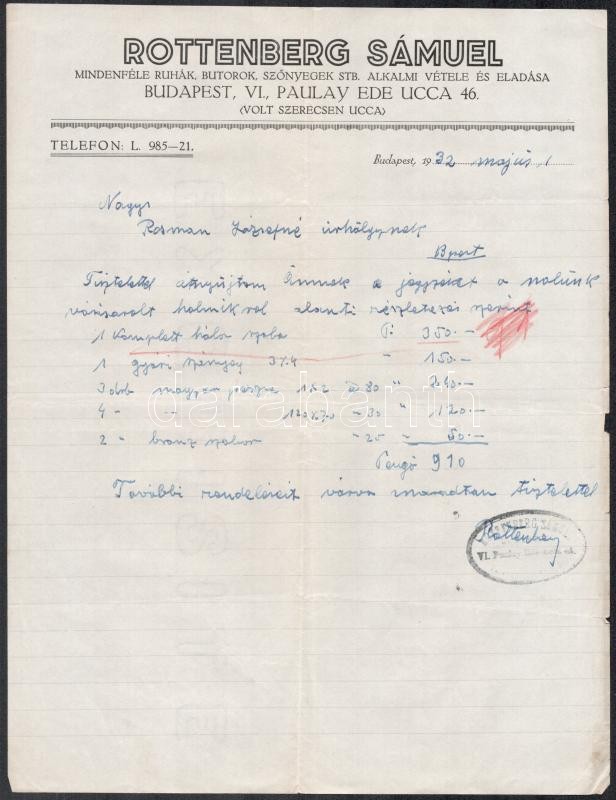 ROTTENBERG SÁMUEL
MINDENFÉLE RUHÁK, BUTOROK, SZŐNYEGEK STB. ALKALMI VÉTELE ÉS ELADÁSA
BUDAPEST, VI., PAULAY EDE UCCA 46.
(VOLT SZERECSEN UCCA)
TELEFON: L. 985—21.
Budapest, 1932 május 1
Nagys
Rosman Józsefné úrhölgynek
Bpest
Tisztelettel átnyújtom Önnek a jegyzéket a nálunk
vásárolt holmikról alanti részletezés szerint
1 komplett háló szoba P. 350.—
1 gyári szőnyeg 3x4 " 150.—
3 drb magyar perzsa 1x2 à 80 " 240.—
4 " " 120x70 " 30 " 120.—
2 " bronz szobor " 25 " 50.—
Pengő 910
További rendeléseit várva maradtam tisztelettel
Rottenberg
ROTTENBERG SÁMUEL
VI. Paulay Ede ucca 46.
darabanth